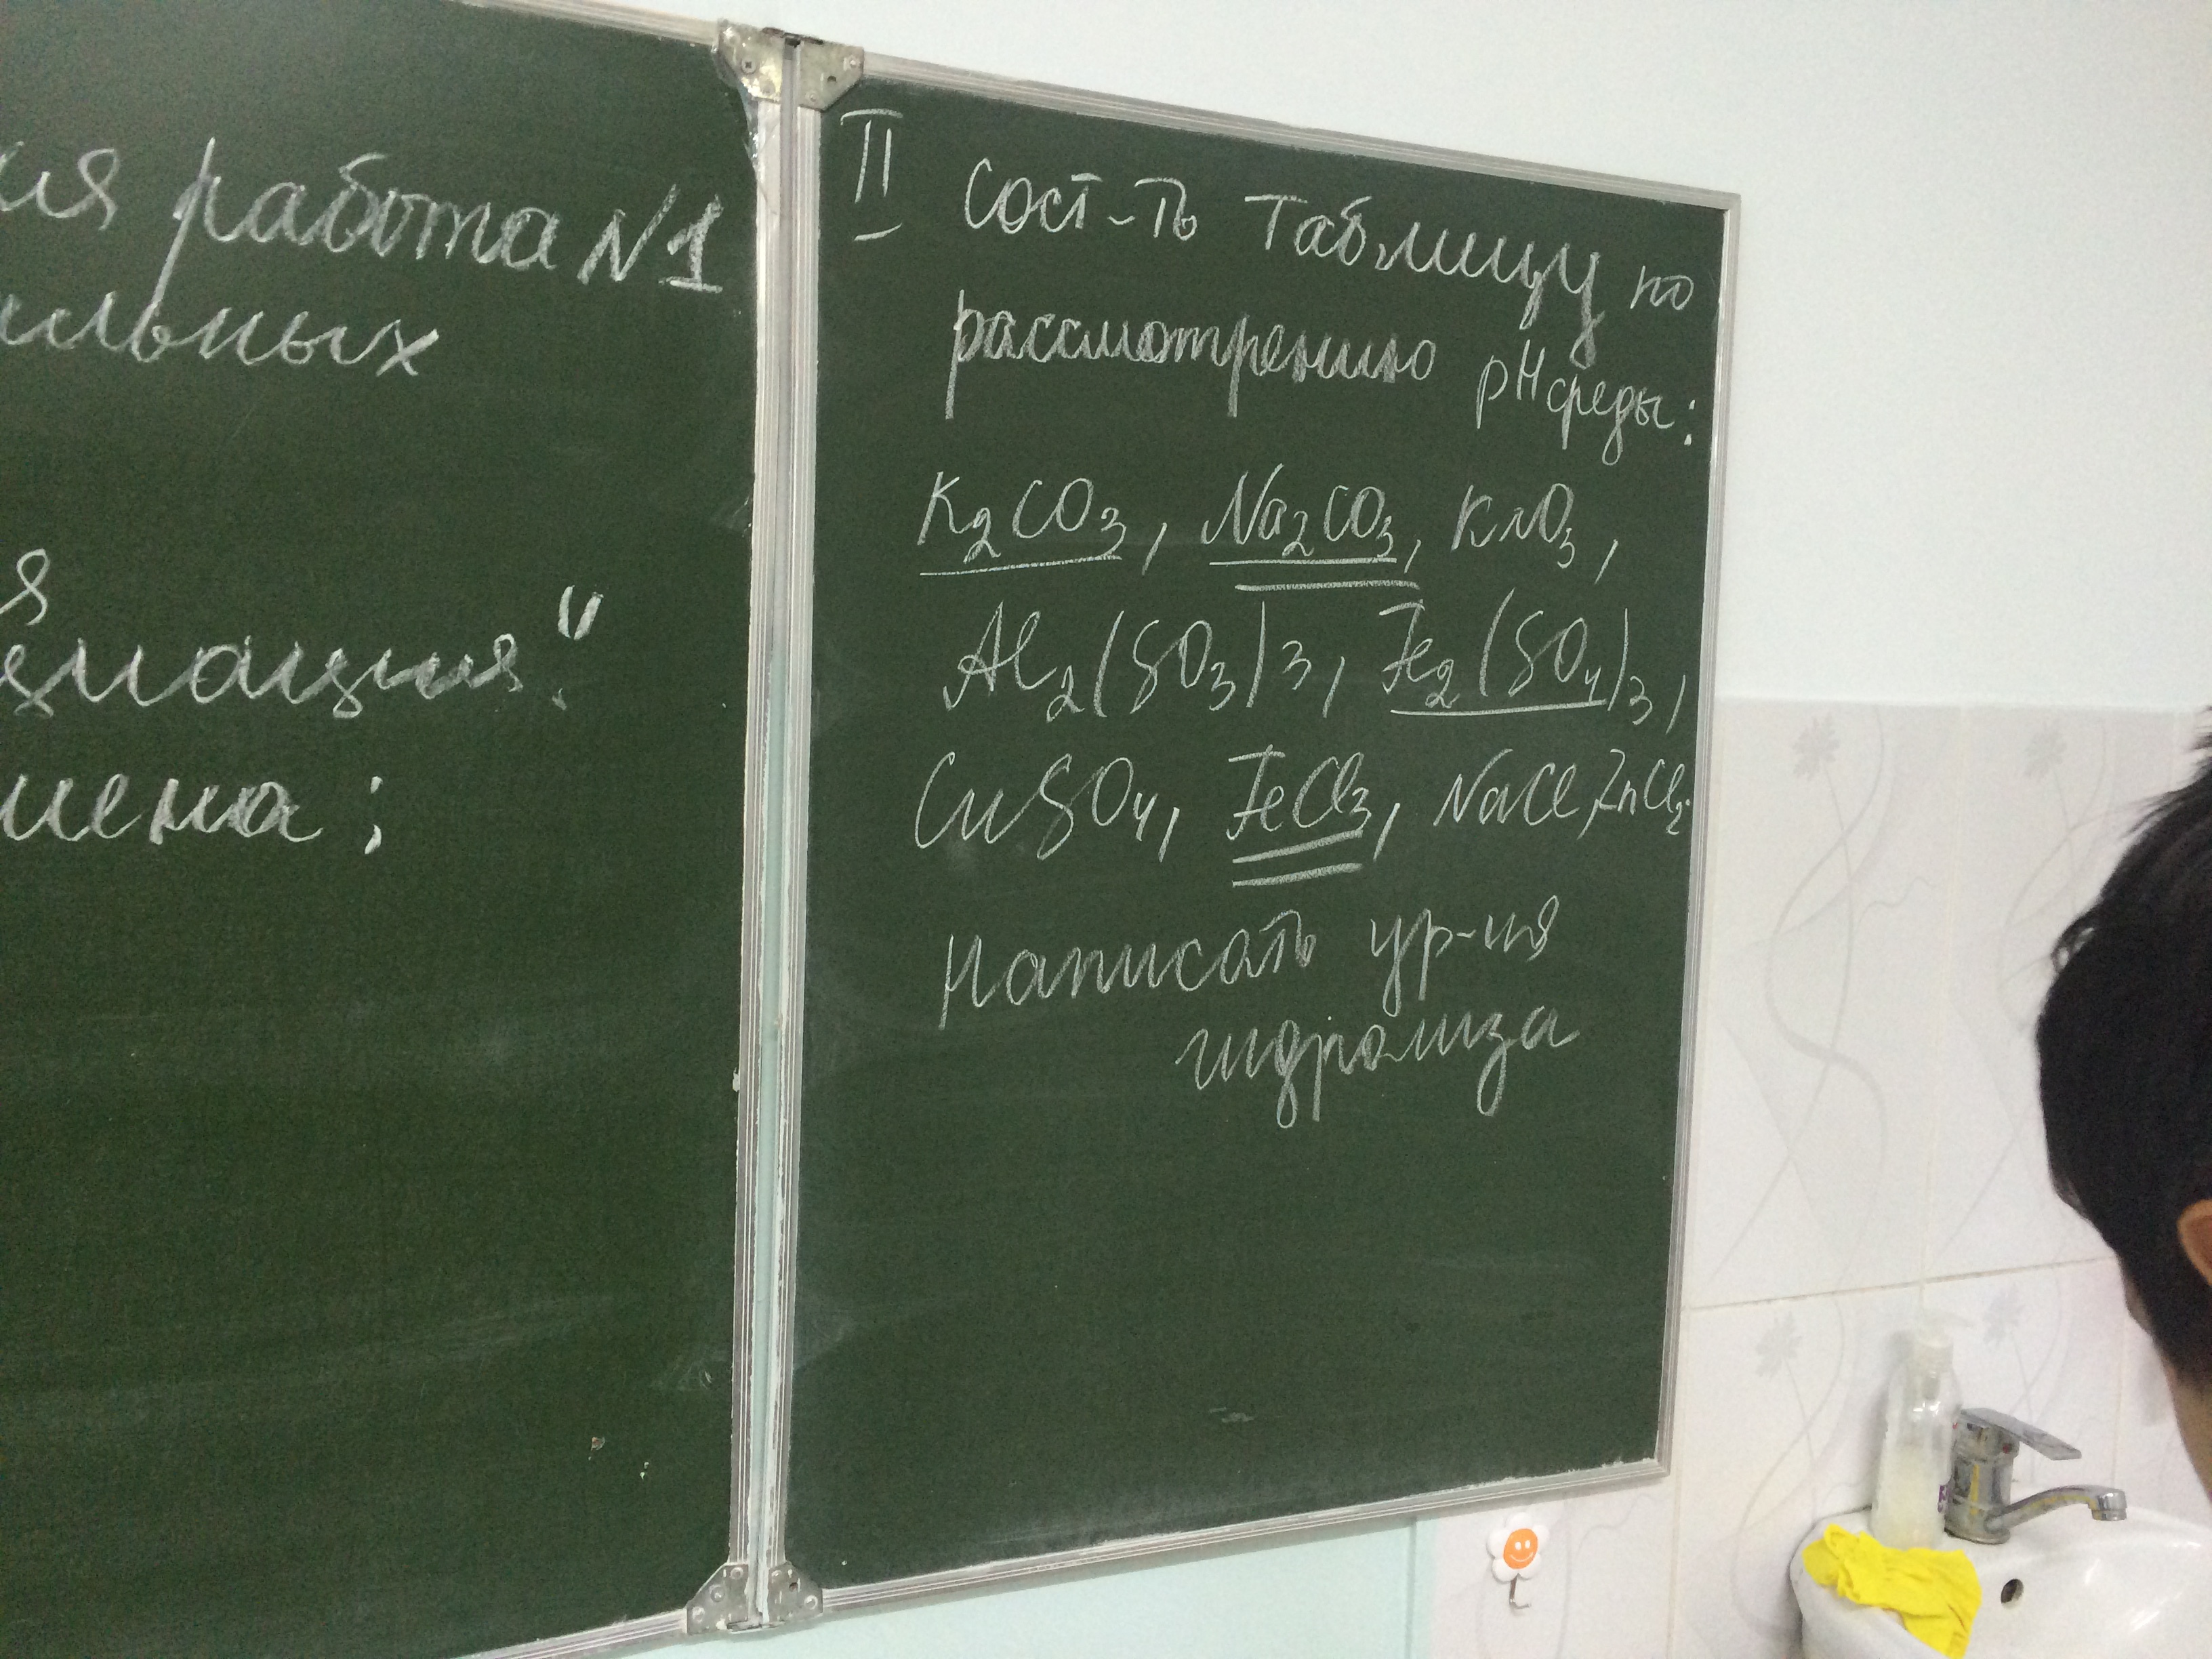 работа №1
я
мена;
II сост-ть таблицу по
рассмотрению pH среды:
K₂CO₃, Na₂CO₃, KNO₃,
Al₂(SO₃)3, Fe₂(SO₄)₃,
CuSO₄, FeCl₃, NaCl, ZnCl₂.
Написать ур-ия
гидролиза